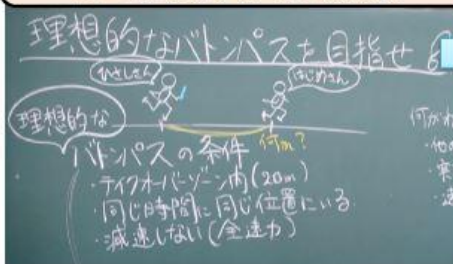 理想的なバトンパスを目指せ
ひさしさん
はじめさん
理想的な
何m?
バトンパスの条件
・テイクオーバーゾーン内(20m)
・同じ時間に同じ位置にいる
・減速しない(全速力)
何が
・他の